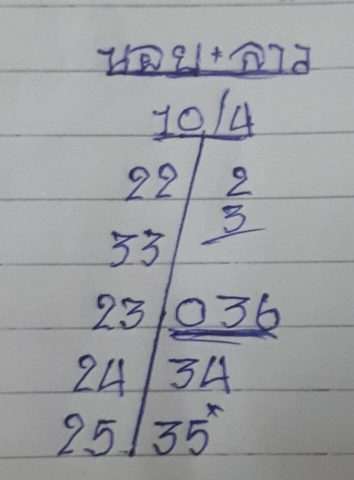 นอย+ลาว
10/4
22 2
3
33
23 036
24 34
25 35*